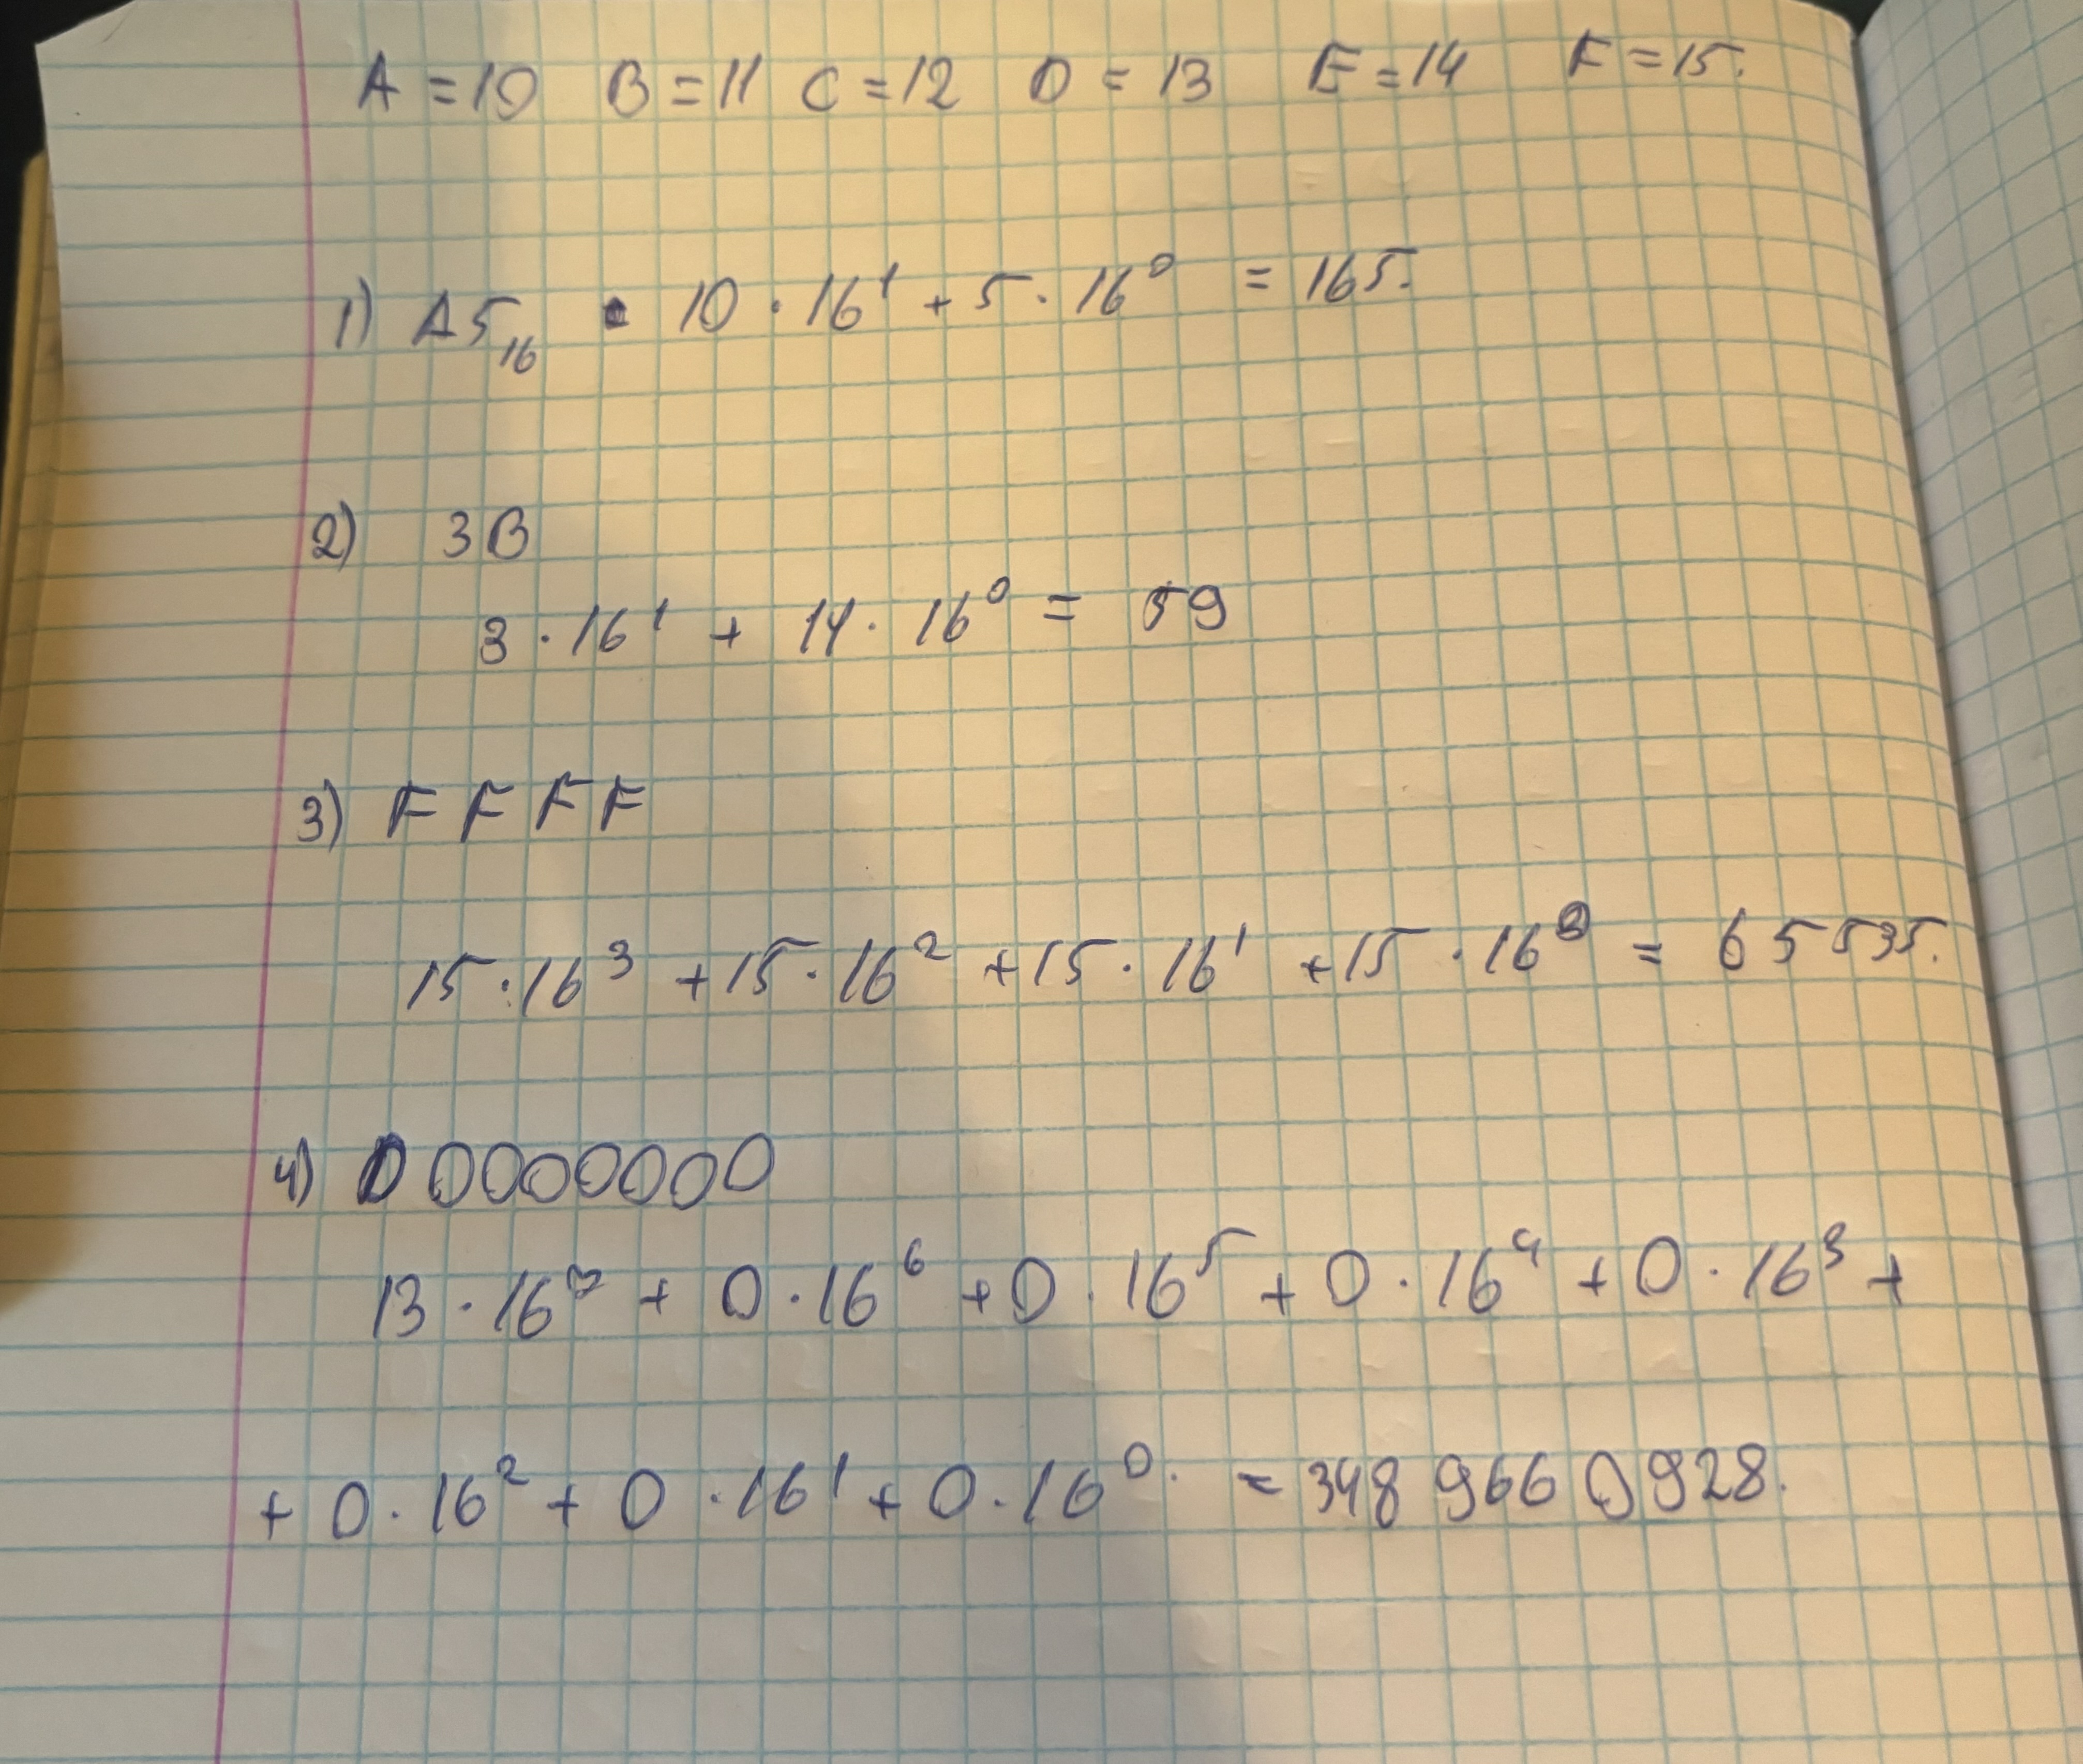 A = 10 B = 11 C = 12 D = 13 E = 14 F = 15.
1) A5₁₆ = 10 · 16¹ + 5 · 16⁰ = 165.
2) 3B
3 · 16¹ + 11 · 16⁰ = 59
3) F F F F
15 · 16³ + 15 · 16² + 15 · 16¹ + 15 · 16⁰ = 65 535.
4) D0000000
13 · 16⁷ + 0 · 16⁶ + 0 · 16⁵ + 0 · 16⁴ + 0 · 16³ +
+ 0 · 16² + 0 · 16¹ + 0 · 16⁰. = 348 966 0 928.